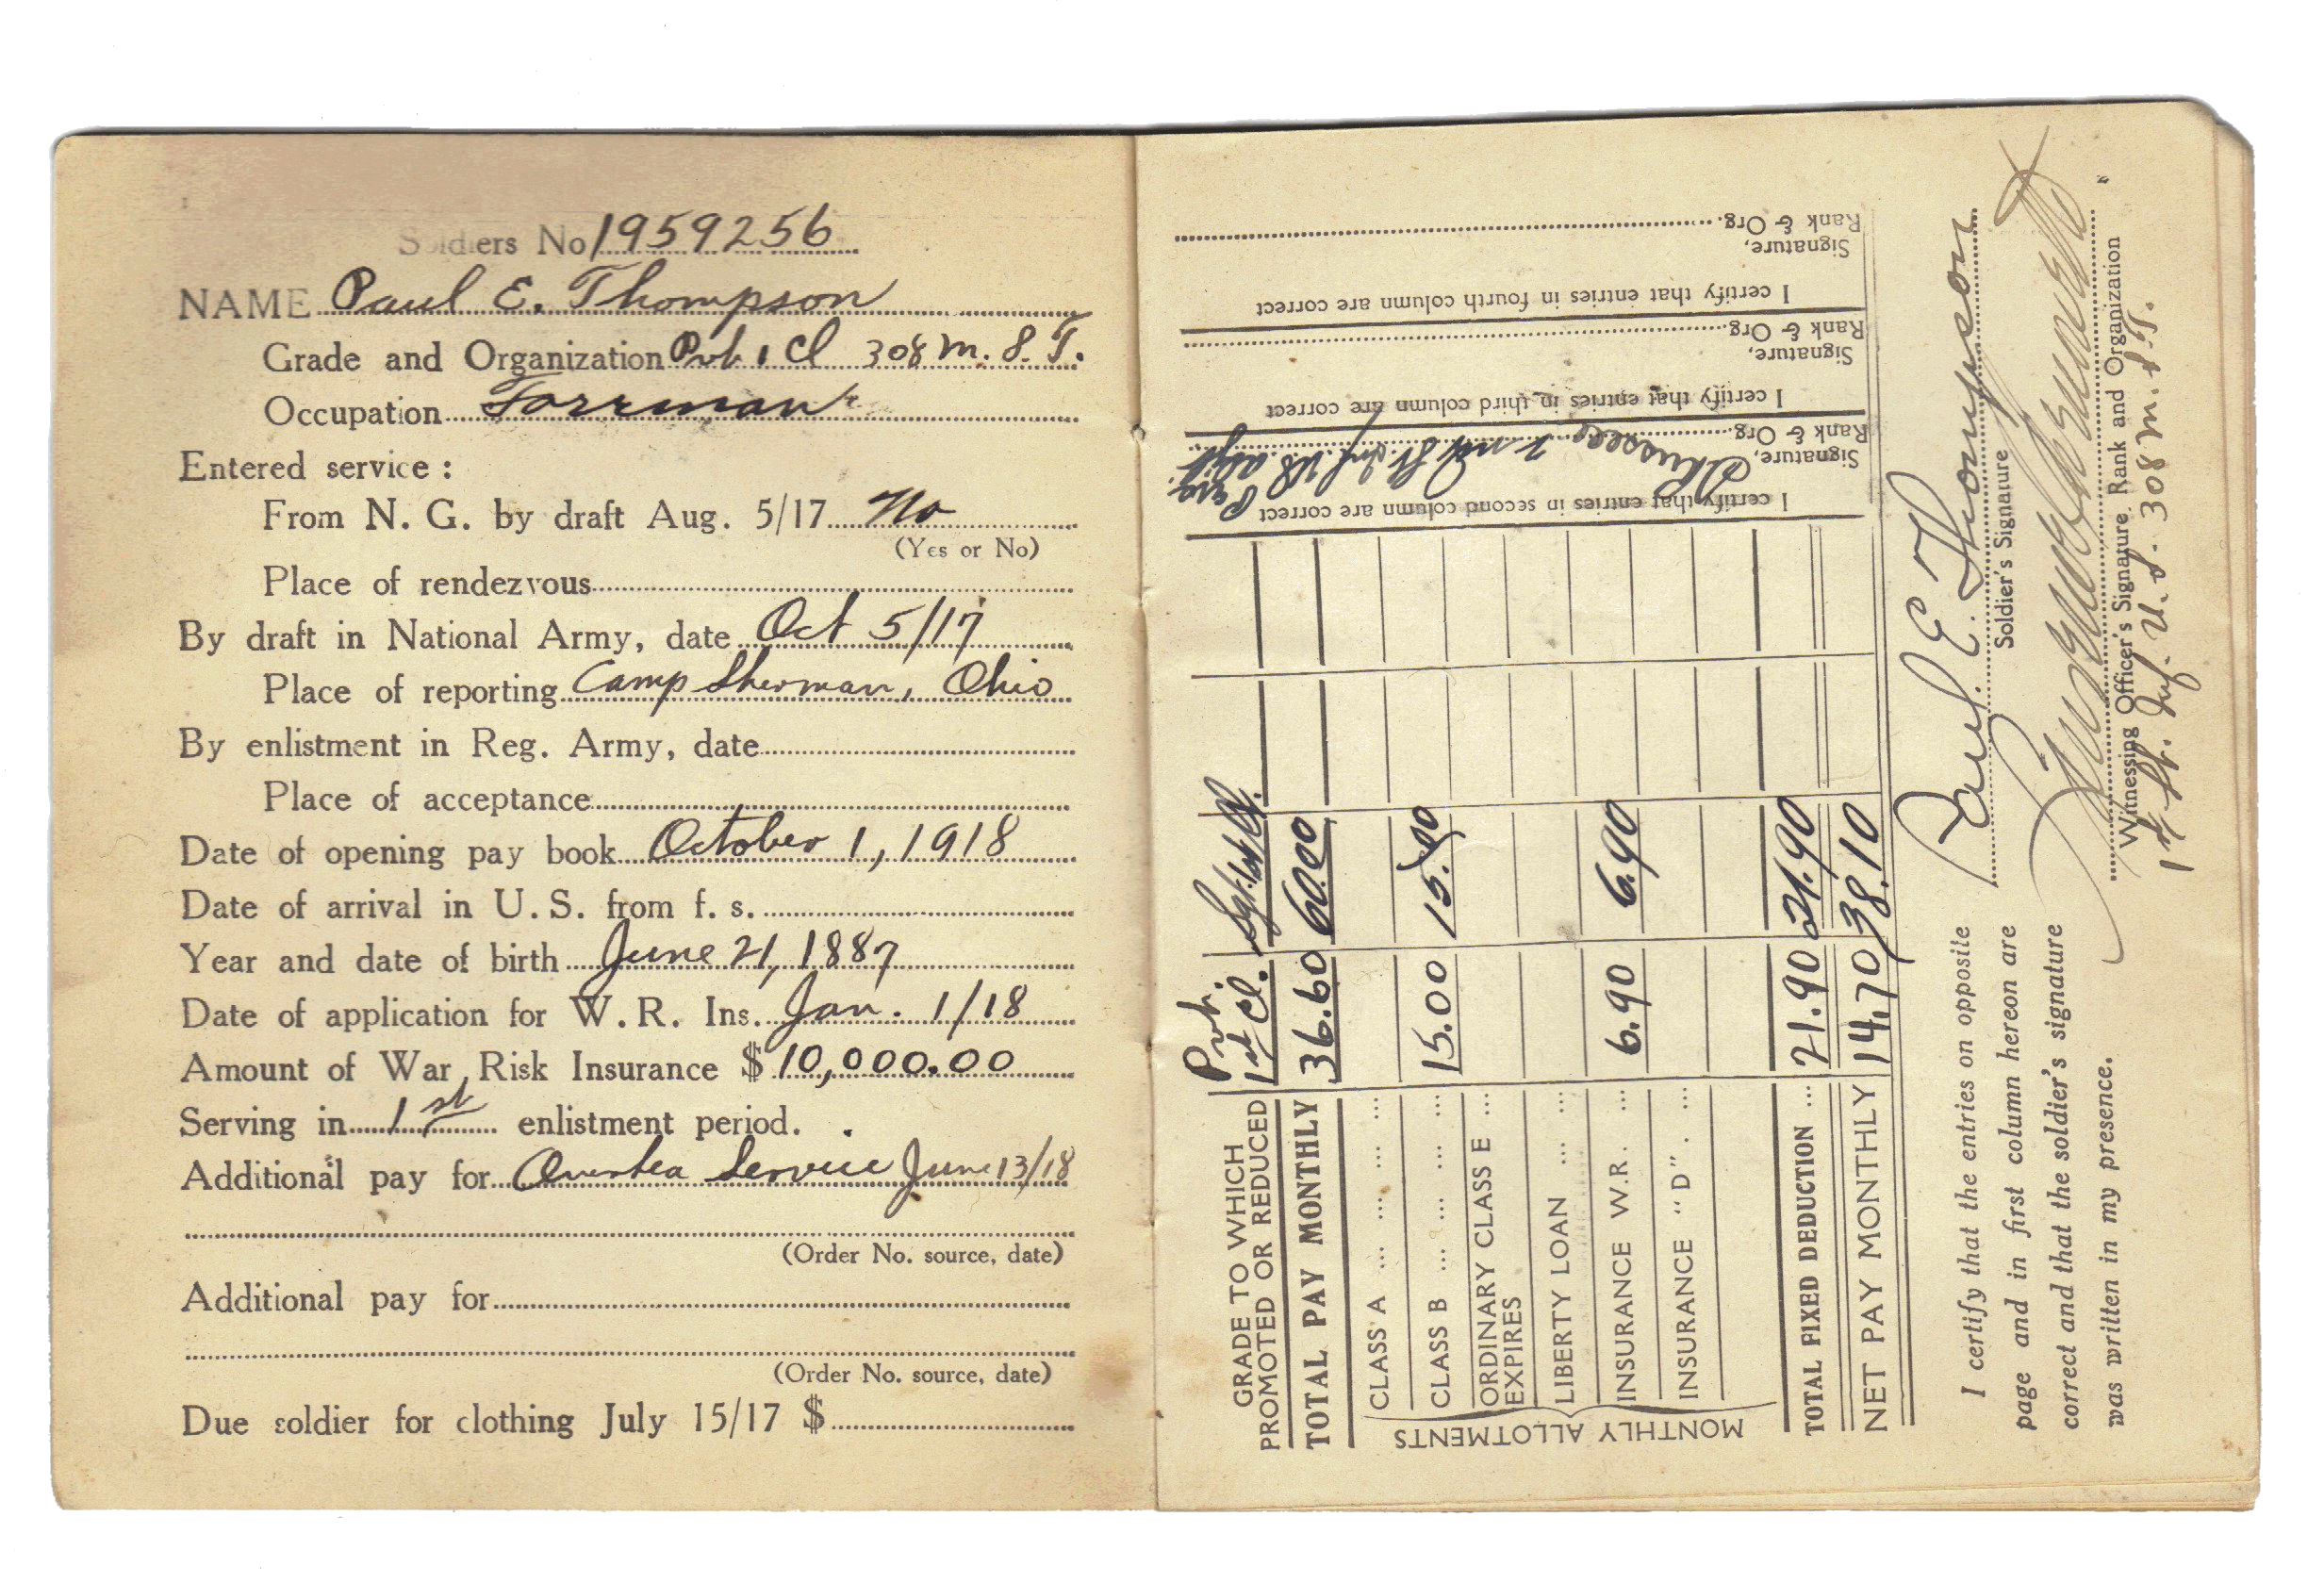 Soldiers No 1959256
NAME Paul E. Thompson
Grade and Organization Pvt. 1 Cl 308 M. S. T.
Occupation
Entered service :
From N. G. by draft Aug. 5/17 No
(Yes or No)
Place of rendezvous
By draft in National Army, date Oct 5/17
Place of reporting Camp Sherman, Ohio
By enlistment in Reg. Army, date
Place of acceptance
Date of opening pay book October 1, 1918
Date of arrival in U.S. from f. s.
Year and date of birth June 21, 1887
Date of application for W.R. Ins. Jan. 1/18
Amount of War Risk Insurance $ 10,000.00
Serving in 1st enlistment period.
Additional pay for Oversea Service June 13/18
(Order No. source, date)
Additional pay for
(Order No. source, date)
Due soldier for clothing July 15/17 $
GRADE TO WHICH PROMOTED OR REDUCED Pvt. 1st Cl. Sgt. 1st Cl.
TOTAL PAY MONTHLY 36.60 60.00
MONTHLY ALLOTMENTS
CLASS A ... ... ...
CLASS B ... ... ... 15.00 15.00
ORDINARY CLASS E ...
EXPIRES
LIBERTY LOAN ... ...
INSURANCE W.R. ... 6.90 6.90
INSURANCE "D". ...
TOTAL FIXED DEDUCTION ... 21.90 21.90
NET PAY MONTHLY 14.70 38.10
I certify that entries in second column are correct
Signature,
Rank & Org. 2nd Lt. Inf. US
I certify that entries in third column are correct
Signature,
Rank & Org.
I certify that entries in fourth column are correct
Signature,
Rank & Org.
I certify that the entries on opposite
page and in first column hereon are
correct and that the soldier's signature
was written in my presence.
Paul. E. Thompson
Soldier's Signature
Witnessing Officer's Signature Rank and Organization
1st Lt. Inf. U.S. 308 M. S. T.